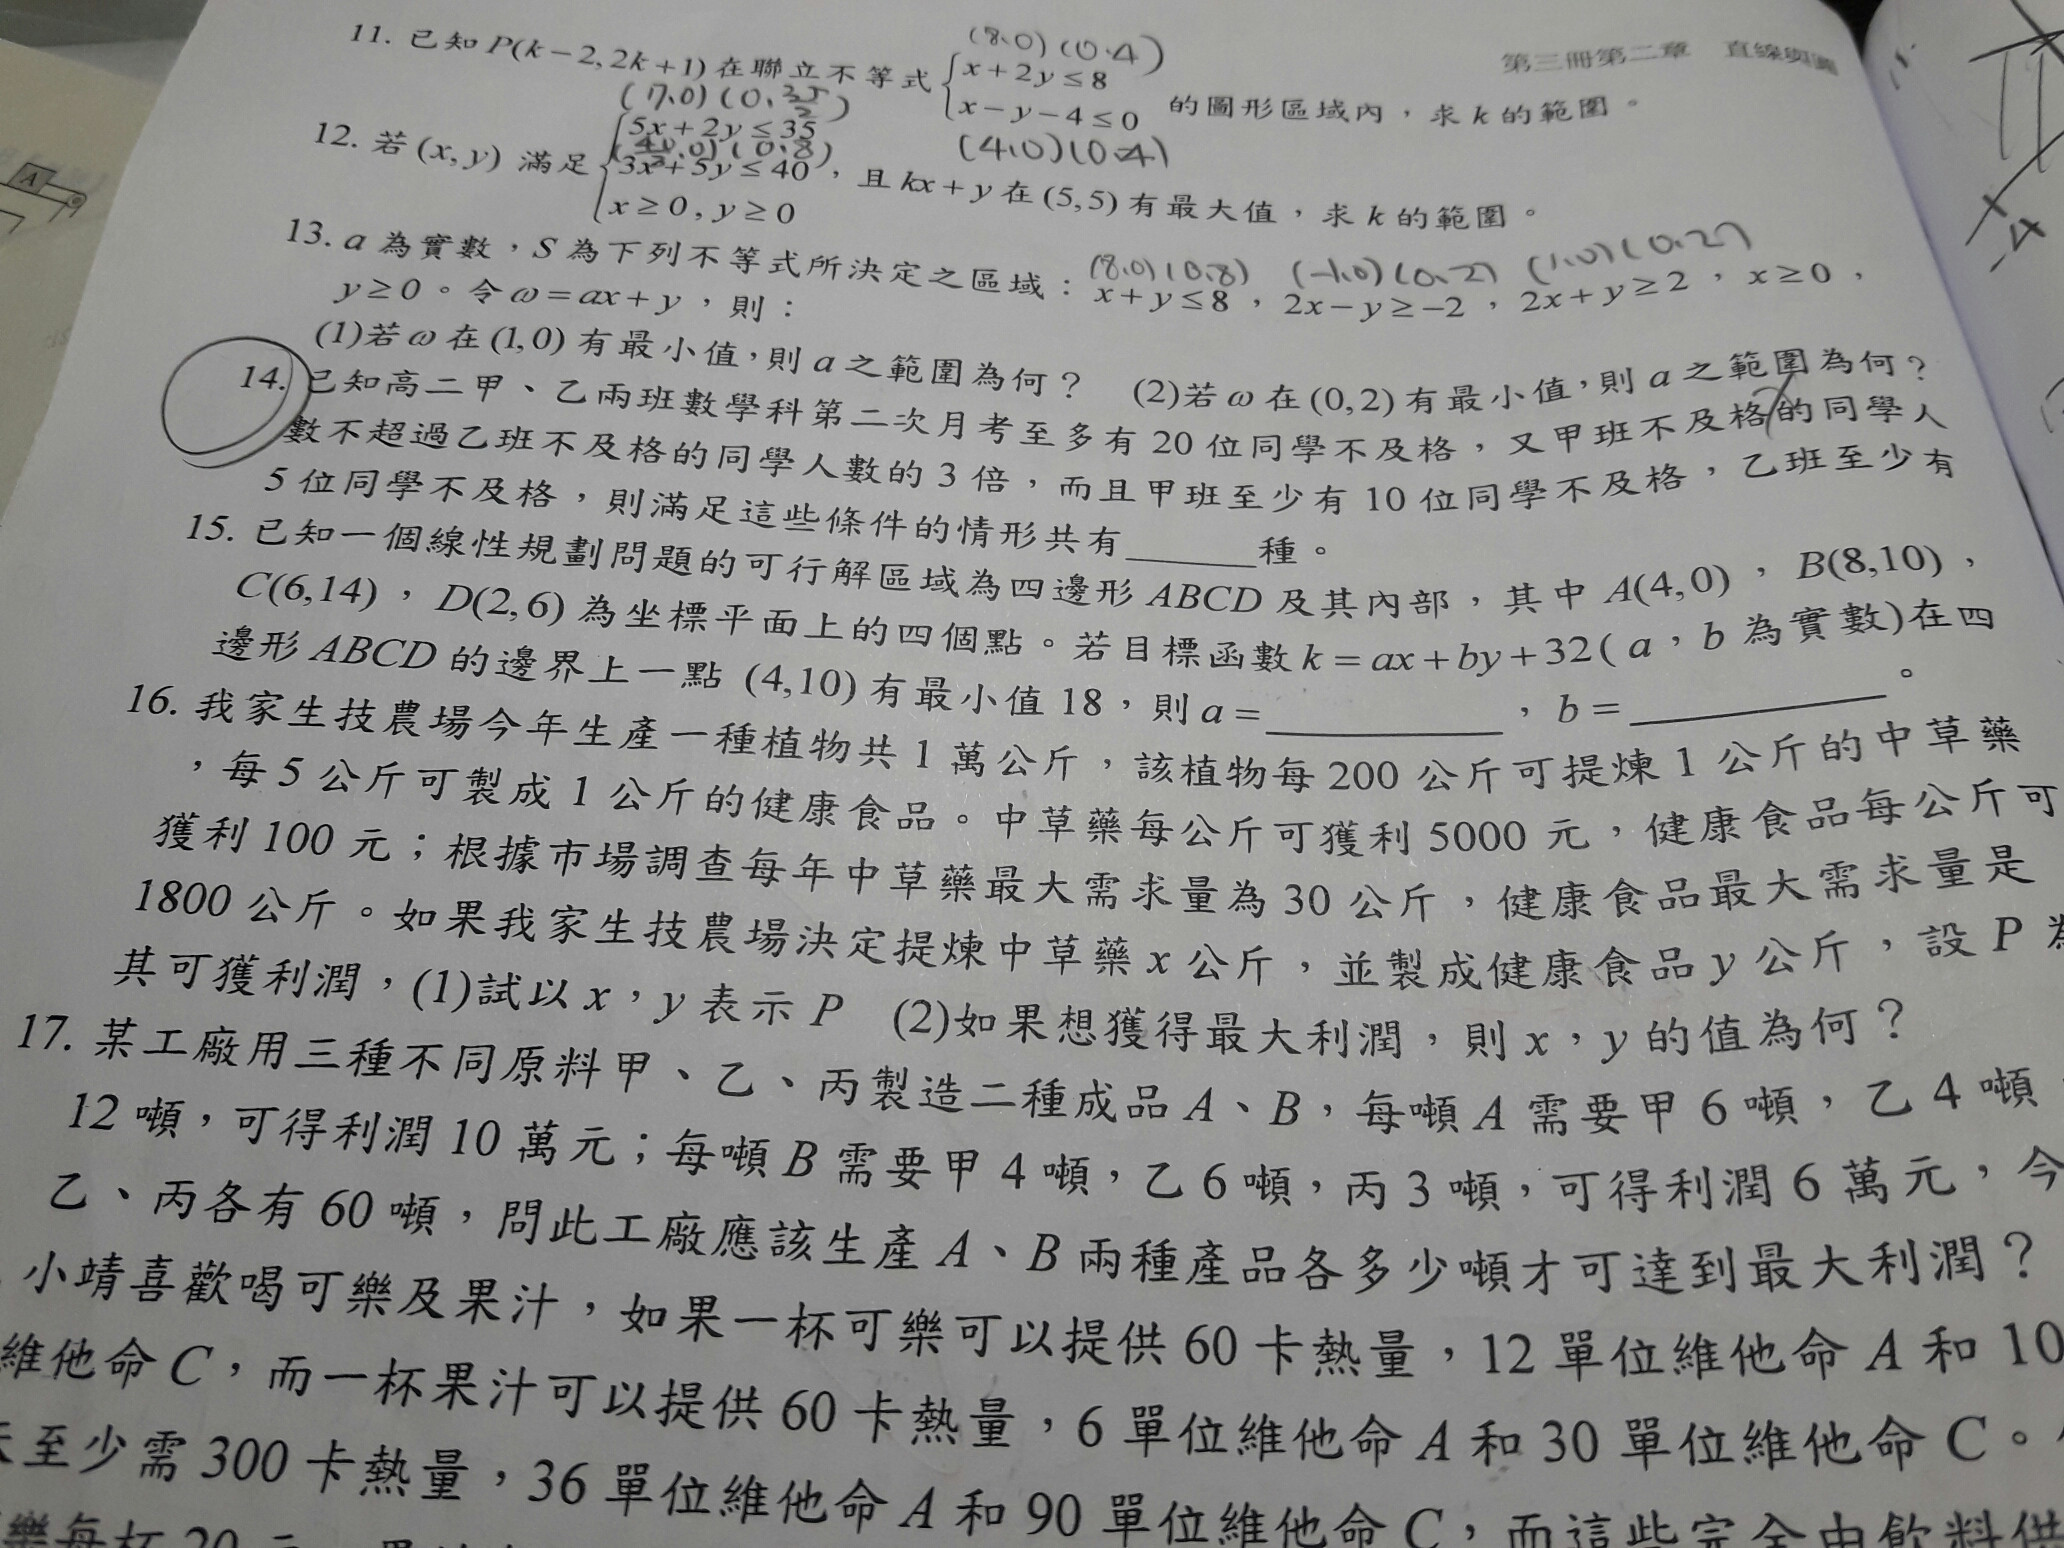 第三冊第二章 直線與圓
(8,0) (0,4)
11. 已知 P(k−2, 2k+1) 在聯立不等式 { x+2y≤8
x−y−4≤0 的圖形區域內，求 k 的範圍。
(7,0) (0,35/2)
(4,0) (0,-4)
12. 若 (x, y) 滿足 { 5x+2y≤35
(40/3,0) (0,8)
3x+5y≤40 ，且 kx+y 在 (5,5) 有最大值，求 k 的範圍。
x≥0, y≥0
(8,0) (0,8) (-1,0) (0,2) (1,0) (0,2)
13. a 為實數，S 為下列不等式所決定之區域：x+y≤8，2x−y≥−2，2x+y≥2，x≥0，
y≥0。令 ω=ax+y，則：
(1)若 ω 在 (1,0) 有最小值，則 a 之範圍為何？ (2)若 ω 在 (0,2) 有最小值，則 a 之範圍為何？
14. 已知高二甲、乙兩班數學科第二次月考至多有 20 位同學不及格，又甲班不及格的同學人
數不超過乙班不及格的同學人數的 3 倍，而且甲班至少有 10 位同學不及格，乙班至少有
5 位同學不及格，則滿足這些條件的情形共有______種。
15. 已知一個線性規劃問題的可行解區域為四邊形 ABCD 及其內部，其中 A(4,0)，B(8,10)，
C(6,14)，D(2,6) 為坐標平面上的四個點。若目標函數 k=ax+by+32( a，b 為實數)在四
邊形 ABCD 的邊界上一點 (4,10) 有最小值 18，則 a=__________，b=__________。
16. 我家生技農場今年生產一種植物共 1 萬公斤，該植物每 200 公斤可提煉 1 公斤的中草藥
，每 5 公斤可製成 1 公斤的健康食品。中草藥每公斤可獲利 5000 元，健康食品每公斤可
獲利 100 元；根據市場調查每年中草藥最大需求量為 30 公斤，健康食品最大需求量是
1800 公斤。如果我家生技農場決定提煉中草藥 x 公斤，並製成健康食品 y 公斤，設 P 為
其可獲利潤，(1)試以 x，y 表示 P (2)如果想獲得最大利潤，則 x，y 的值為何？
17. 某工廠用三種不同原料甲、乙、丙製造二種成品 A、B，每噸 A 需要甲 6 噸，乙 4 噸
12 噸，可得利潤 10 萬元；每噸 B 需要甲 4 噸，乙 6 噸，丙 3 噸，可得利潤 6 萬元，今
乙、丙各有 60 噸，問此工廠應該生產 A、B 兩種產品各多少噸才可達到最大利潤？
小靖喜歡喝可樂及果汁，如果一杯可樂可以提供 60 卡熱量，12 單位維他命 A 和 10
維他命 C，而一杯果汁可以提供 60 卡熱量，6 單位維他命 A 和 30 單位維他命 C。
至少需 300 卡熱量，36 單位維他命 A 和 90 單位維他命 C，而這些完全由飲料供
樂每杯 20 元
A
-4